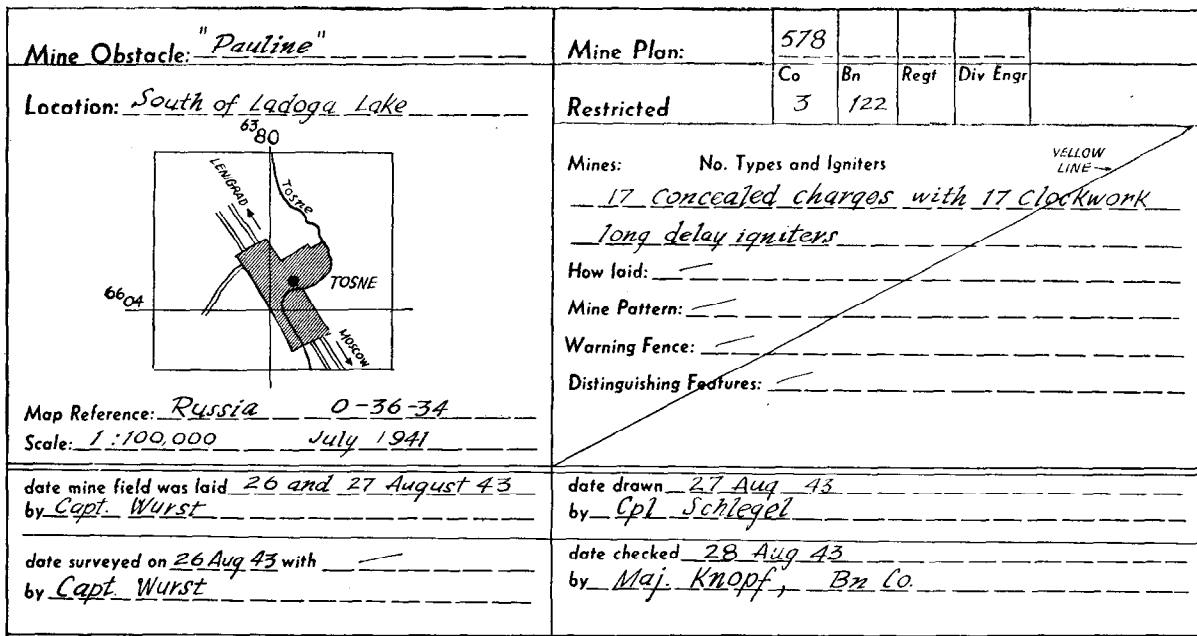 Mine Obstacle: "Pauline"
Location: South of Ladoga Lake
63 80
LENIGRAD
Tosne
TOSNE
66 04
MOSCOW
Map Reference: Russia 0-36-34
Scale: 1:100,000 July 1941
Mine Plan: 578
Co Bn Regt Div Engr
Restricted 3 122
Mines: No. Types and Igniters
YELLOW
LINE→
17 concealed charges with 17 clockwork
long delay igniters
How laid: —
Mine Pattern: —
Warning Fence: —
Distinguishing Features: —
date mine field was laid 26 and 27 August 43
by Capt. Wurst
date surveyed on 26 Aug 43 with —
by Capt. Wurst
date drawn 27 Aug 43
by Cpl Schlegel
date checked 28 Aug 43
by Maj. Knopf, Bn Co.